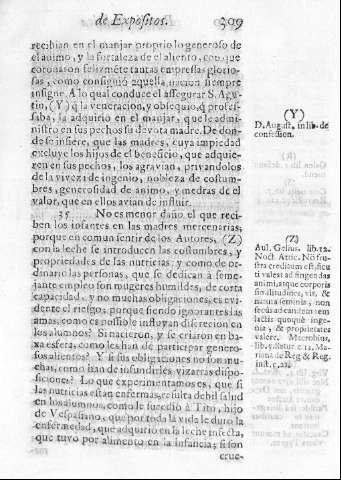 de Expositos. 309
recibian en el manjar proprio lo generoso de
el animo, y la fortaleza de el aliento, con que
coronaron felizmẽte tantas empressas glorio-
sas, como consiguiò aquella nacion siempre
insigne. A lo qual conduce el assegurar S. Agu-
tin, (Y) q̃ la veneracion, y obsequio, q̃ profes-
saba, la adquiriò en el manjar, que le admi-
nistro en sus pechos su devota madre. De don-
de se infiere, que las madres, cuya impiedad
excluye los hijos de el beneficio, que adquie-
ren en sus pechos, los agravian, privandolos
de la viveza de ingenio, nobleza de costum-
bres, generosidad de animo, y medras de el
valor, que en ellos avian de influir.
35 No es menor daño, el que reci-
ben los infantes en las madres mercenarias;
porque en comun sentir de los Autores, (Z)
con la leche se introducen las costumbres, y
propriedades de las nutrices; y como de or-
dinario las personas, que se dedican à seme-
jante empleo son mugeres humildes, de corta
capacidad, y no muchas obligaciones, es evi-
dente el riesgo; porque siendo ignorantes las
amas, como es posible influyan discrecion en
los alumnos? Si nacieron, y se criaron en ba-
xa esfera, como les han de participar genero-
sos alientos? Y si sus obligaciones no son mu-
chas, como han de infundirles vizarras dispo-
siciones? Lo que experimentamos es, que si
las nutrices estan enfermas, resulta debil salud
en los alumnos, como le sucediò à Tito, hijo
de Vespasiano, que por toda la vida le duro la
enfermedad, que adquiriò en la leche infecta,
que tuvo por alimento en la infancia; si son
crue-
(Y)
D. August. in lib. de
confession.
(Z)
Aul. Gelius. lib. 12.
Noct. Attic. Nõ fu-
stra creditum est, sicu
ti valeat ad fingendas
animi, atque corporis
similitudines, vis, &
natura seminis; non
secus ad eamdem rem
lactis quoque inge-
nia, & proprietates
valere. Macrobius,
lib.
riana de Reg & Reg.